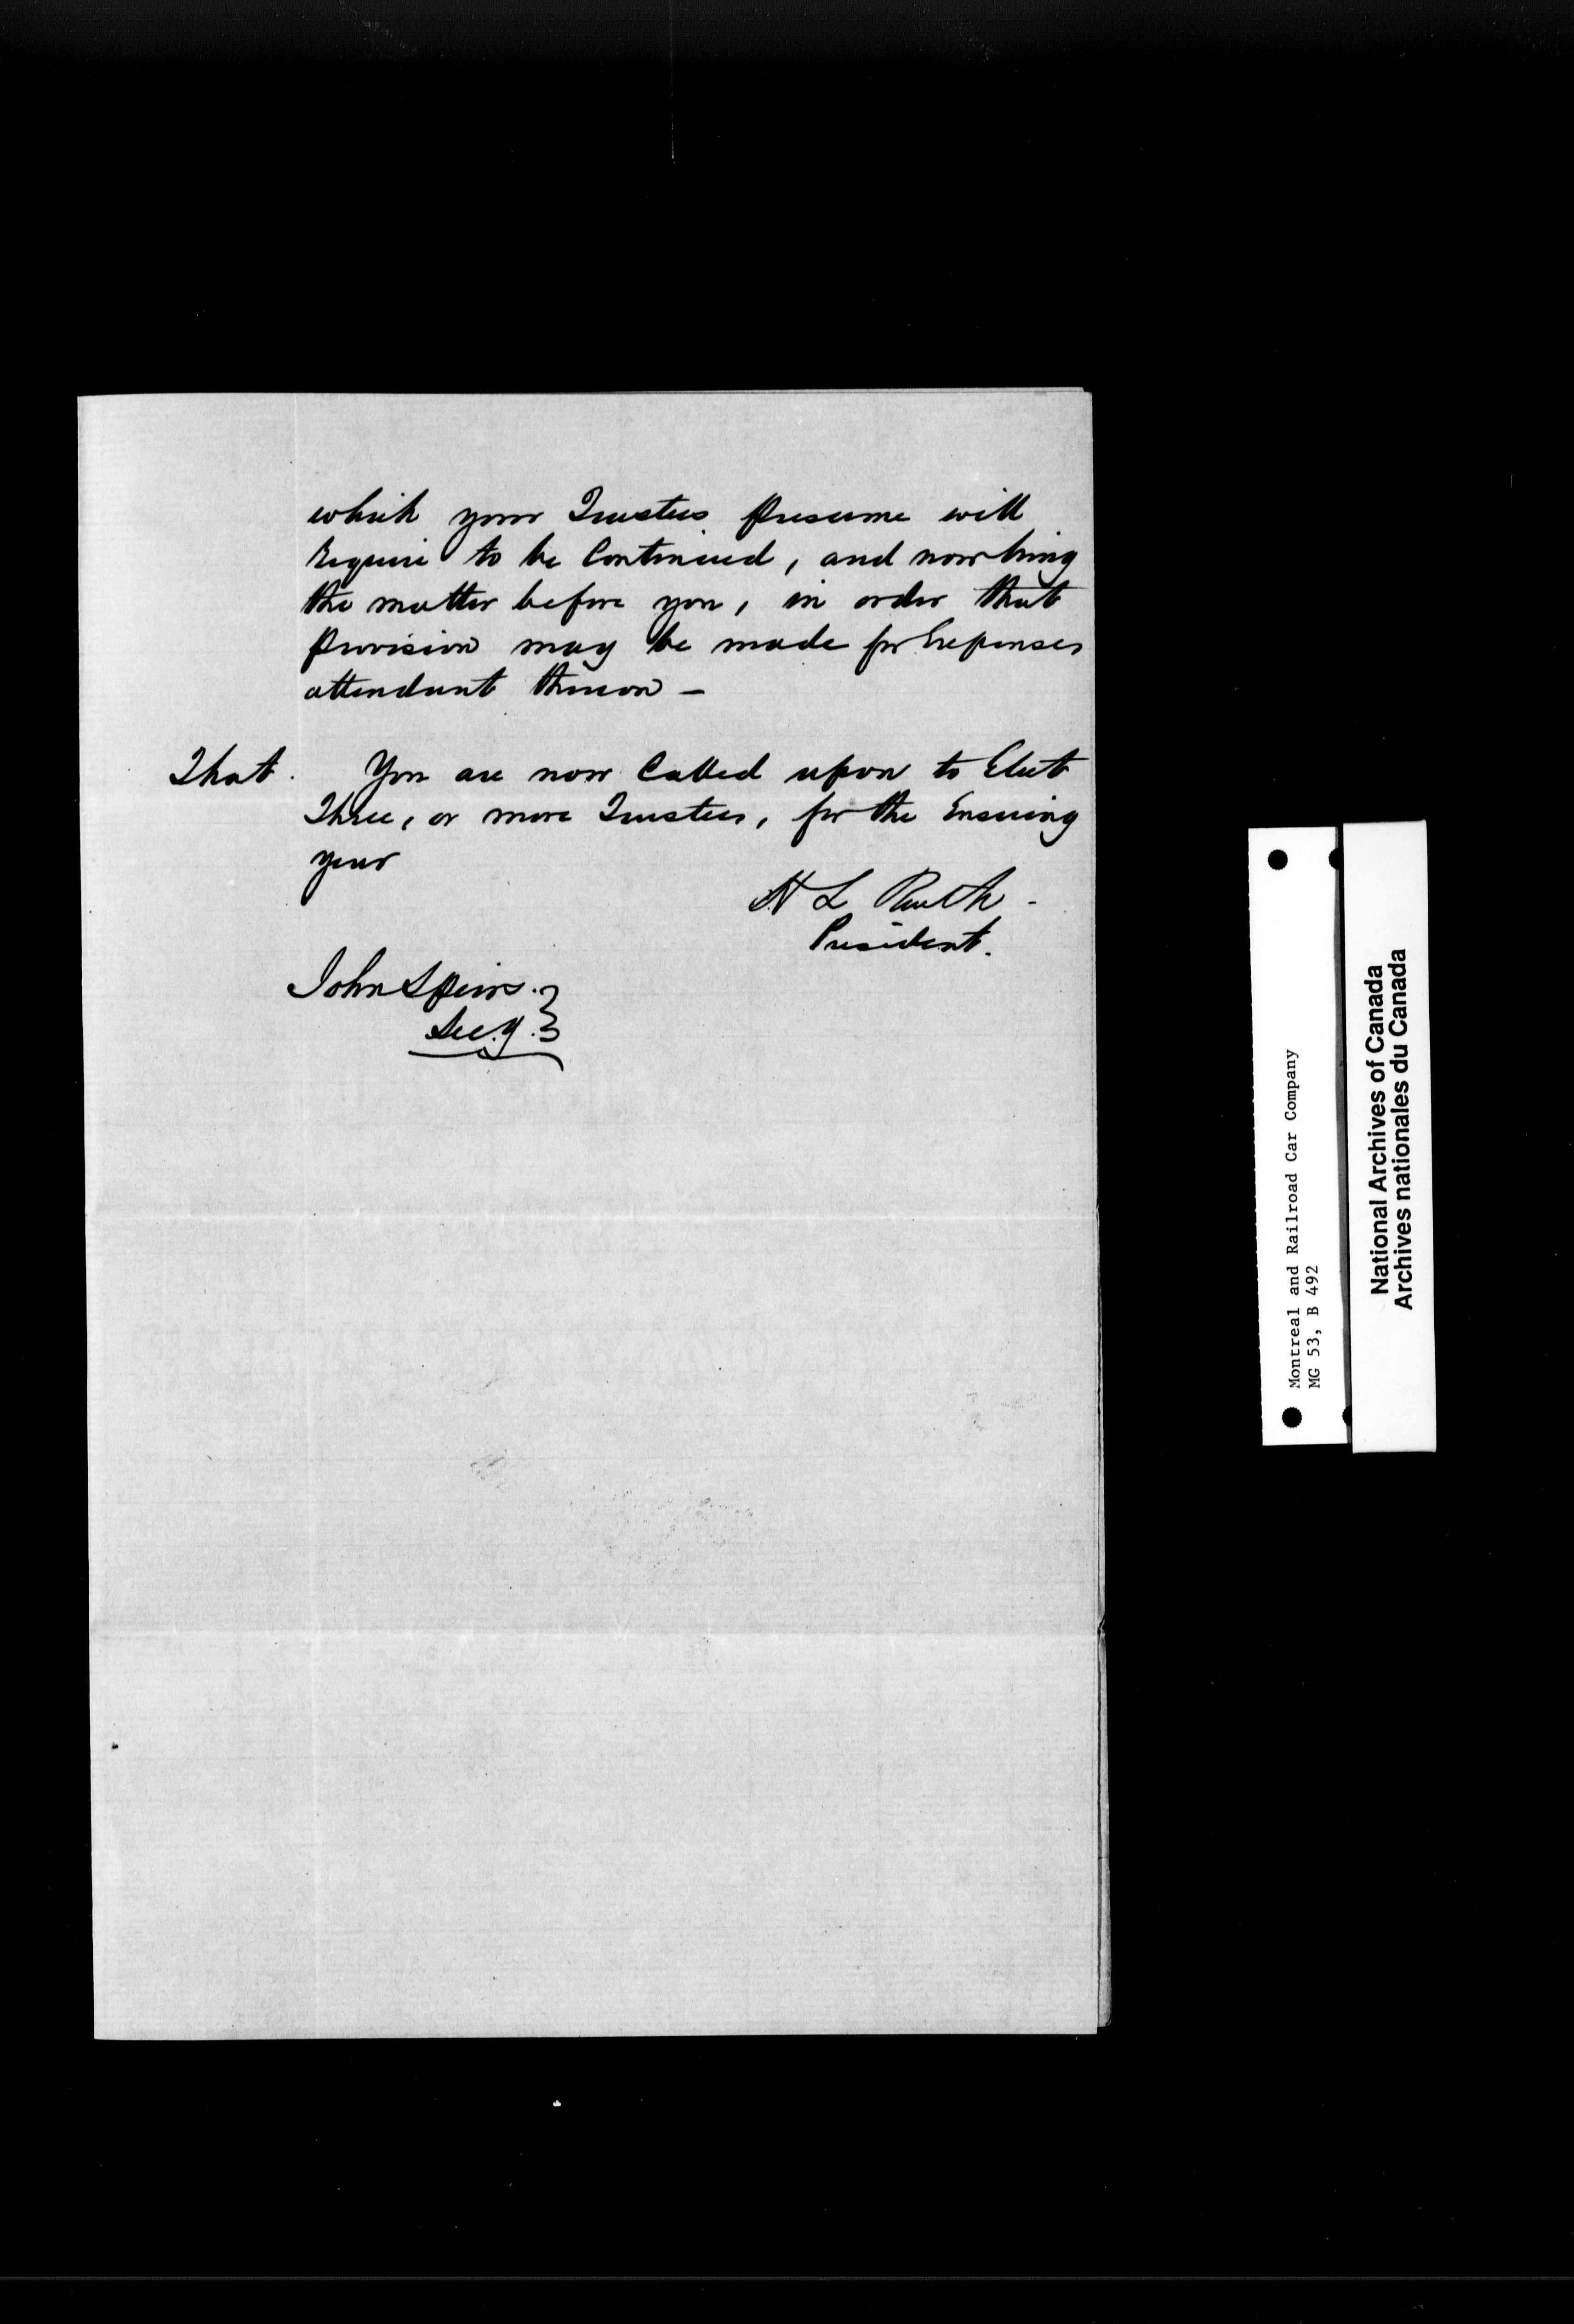 which your Trustees presume will
require to be Continued, and now bring
the matter before you, in order that
provision may be made for Expenses
attendant thereon —
That. You are now Called upon to Elect
Three, or more Trustees, for the Ensuing
year
H L Routh -
President.
John Speirs.
Sec.y.
Montreal and Railroad Car Company
MG 53, B 492
National Archives of Canada
Archives nationales du Canada